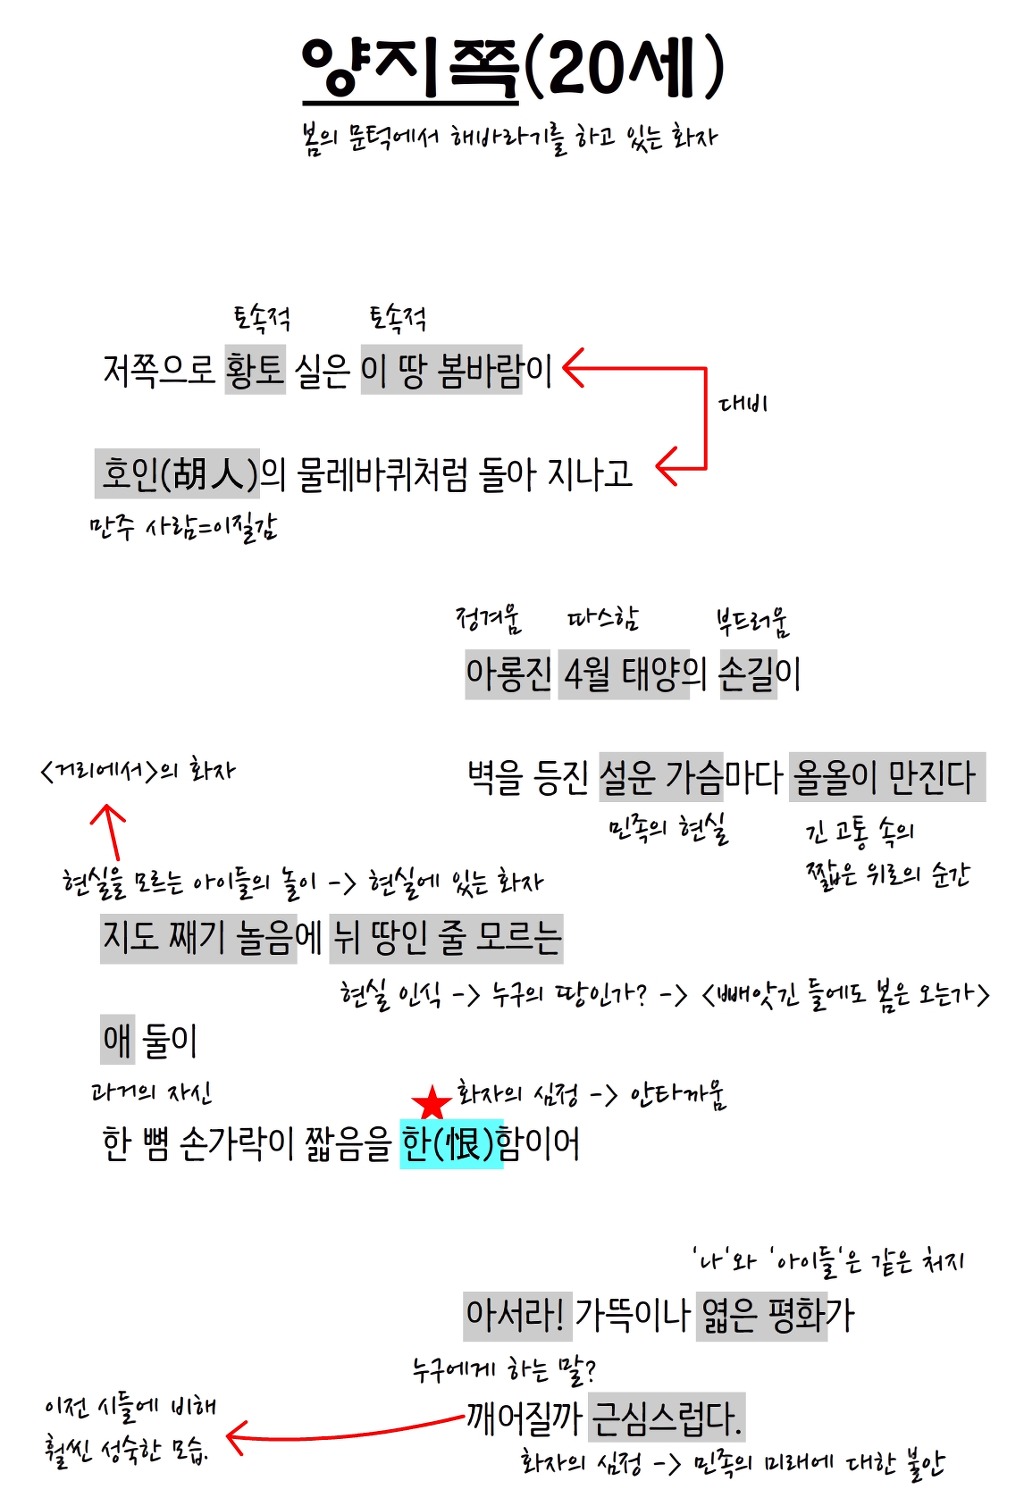 양지쪽(20세)
봄의 문턱에서 해바라기를 하고 있는 화자
토속적 토속적
저쪽으로 황토 실은 이 땅 봄바람이
대비
호인(胡人)의 물레바퀴처럼 돌아 지나고
만주 사람=이질감
정겨움 따스함 부드러움
아롱진 4월 태양의 손길이
<거리에서>의 화자
벽을 등진 설운 가슴마다 올올이 만진다
민족의 현실
긴 고통 속의
짧은 위로의 순간
현실을 모르는 아이들의 놀이 -> 현실에 있는 화자
지도 째기 놀음에 뉘 땅인 줄 모르는
현실 인식 -> 누구의 땅인가? -> <빼앗긴 들에도 봄은 오는가>
애 둘이
과거의 자신
화자의 심정 -> 안타까움
한 뼘 손가락이 짧음을 한(恨)함이어
'나'와 '아이들'은 같은 처지
아서라! 가뜩이나 엷은 평화가
누구에게 하는 말?
깨어질까 근심스럽다.
이전 시들에 비해
훨씬 성숙한 모습.
화자의 심정 -> 민족의 미래에 대한 불안